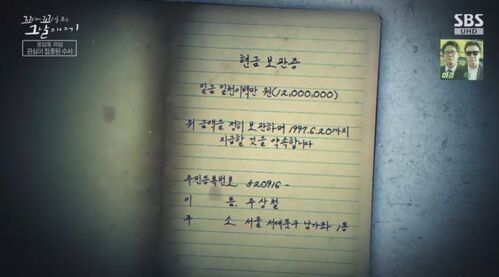 꼬리에 꼬리를 무는
그날 이야기
응암동 괴담
관심이 집중된 수사
SBS
UHD
이근
현금 보관증
일금 일천이백만 원(12,000,000)
위 금액을 정히 보관하며 1997.6.20까지
지급할 것을 약속합니다
주민등록번호 520916-
이 름. 주상철
주 소. 서울 서대문구 남가좌 1동